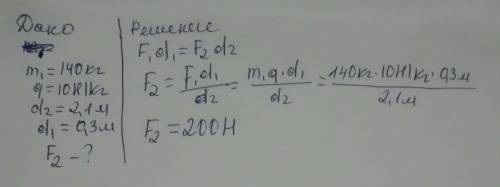 Дано
m₁ = 140 кг
g = 10 Н/кг
d₂ = 2,1 м
d₁ = 0,3 м
F₂ - ?
Решение
F₁d₁ = F₂d₂
F₂ = F₁d₁/d₂ = m₁g·d₁/d₂ = 140кг·10Н/кг·0,3м/2,1м
F₂ = 200Н